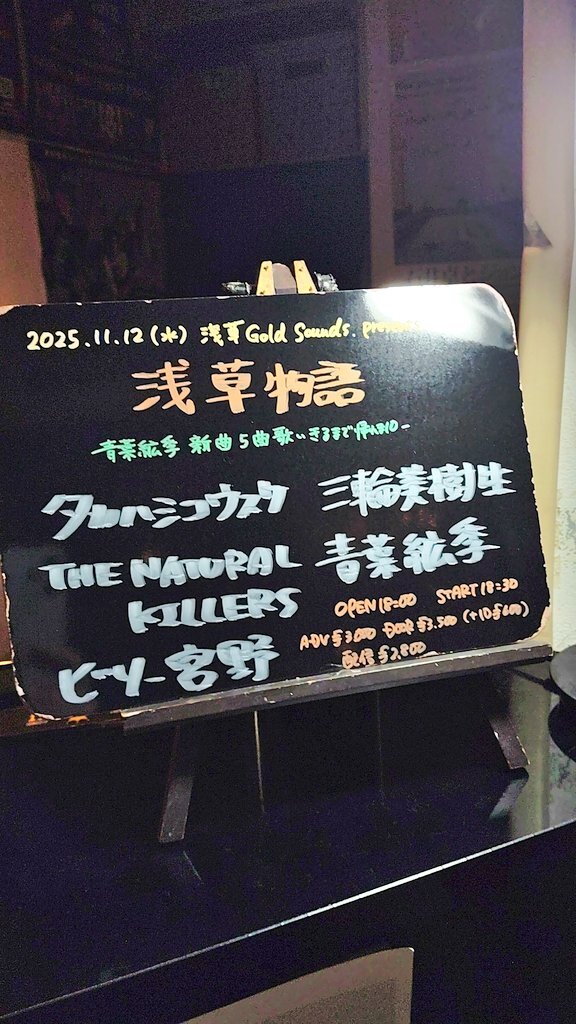 2025.11.12(水) 浅草Gold Sounds. presen
浅草物語
青葉紘季 新曲5曲歌いきるまで帰れま10-
タカハシコウスケ
三輪美樹生
THE NATURAL
KILLERS
青葉紘季
ビーツー宮野
OPEN 18:00 START 18:30
ADV ¥3,000 DOOR ¥3,500 (+1D ¥600)
配信 ¥2,800